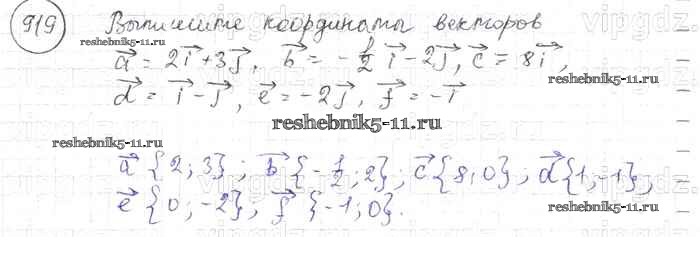 919 Выпишите координаты векторов
reshebnik5-11.ru
a = 2i + 3j, b = -1/2 i - 2j, c = 8i,
reshebnik5-11.ru
d = i - j, e = -2j, f = -i
reshebnik5-11.ru
reshebnik5-11.ru
a {2; 3}; b {-1/2; 2}; c {8; 0}; d {1; -1};
e {0; -2}; f {-1; 0}.
reshebnik5-11.ru